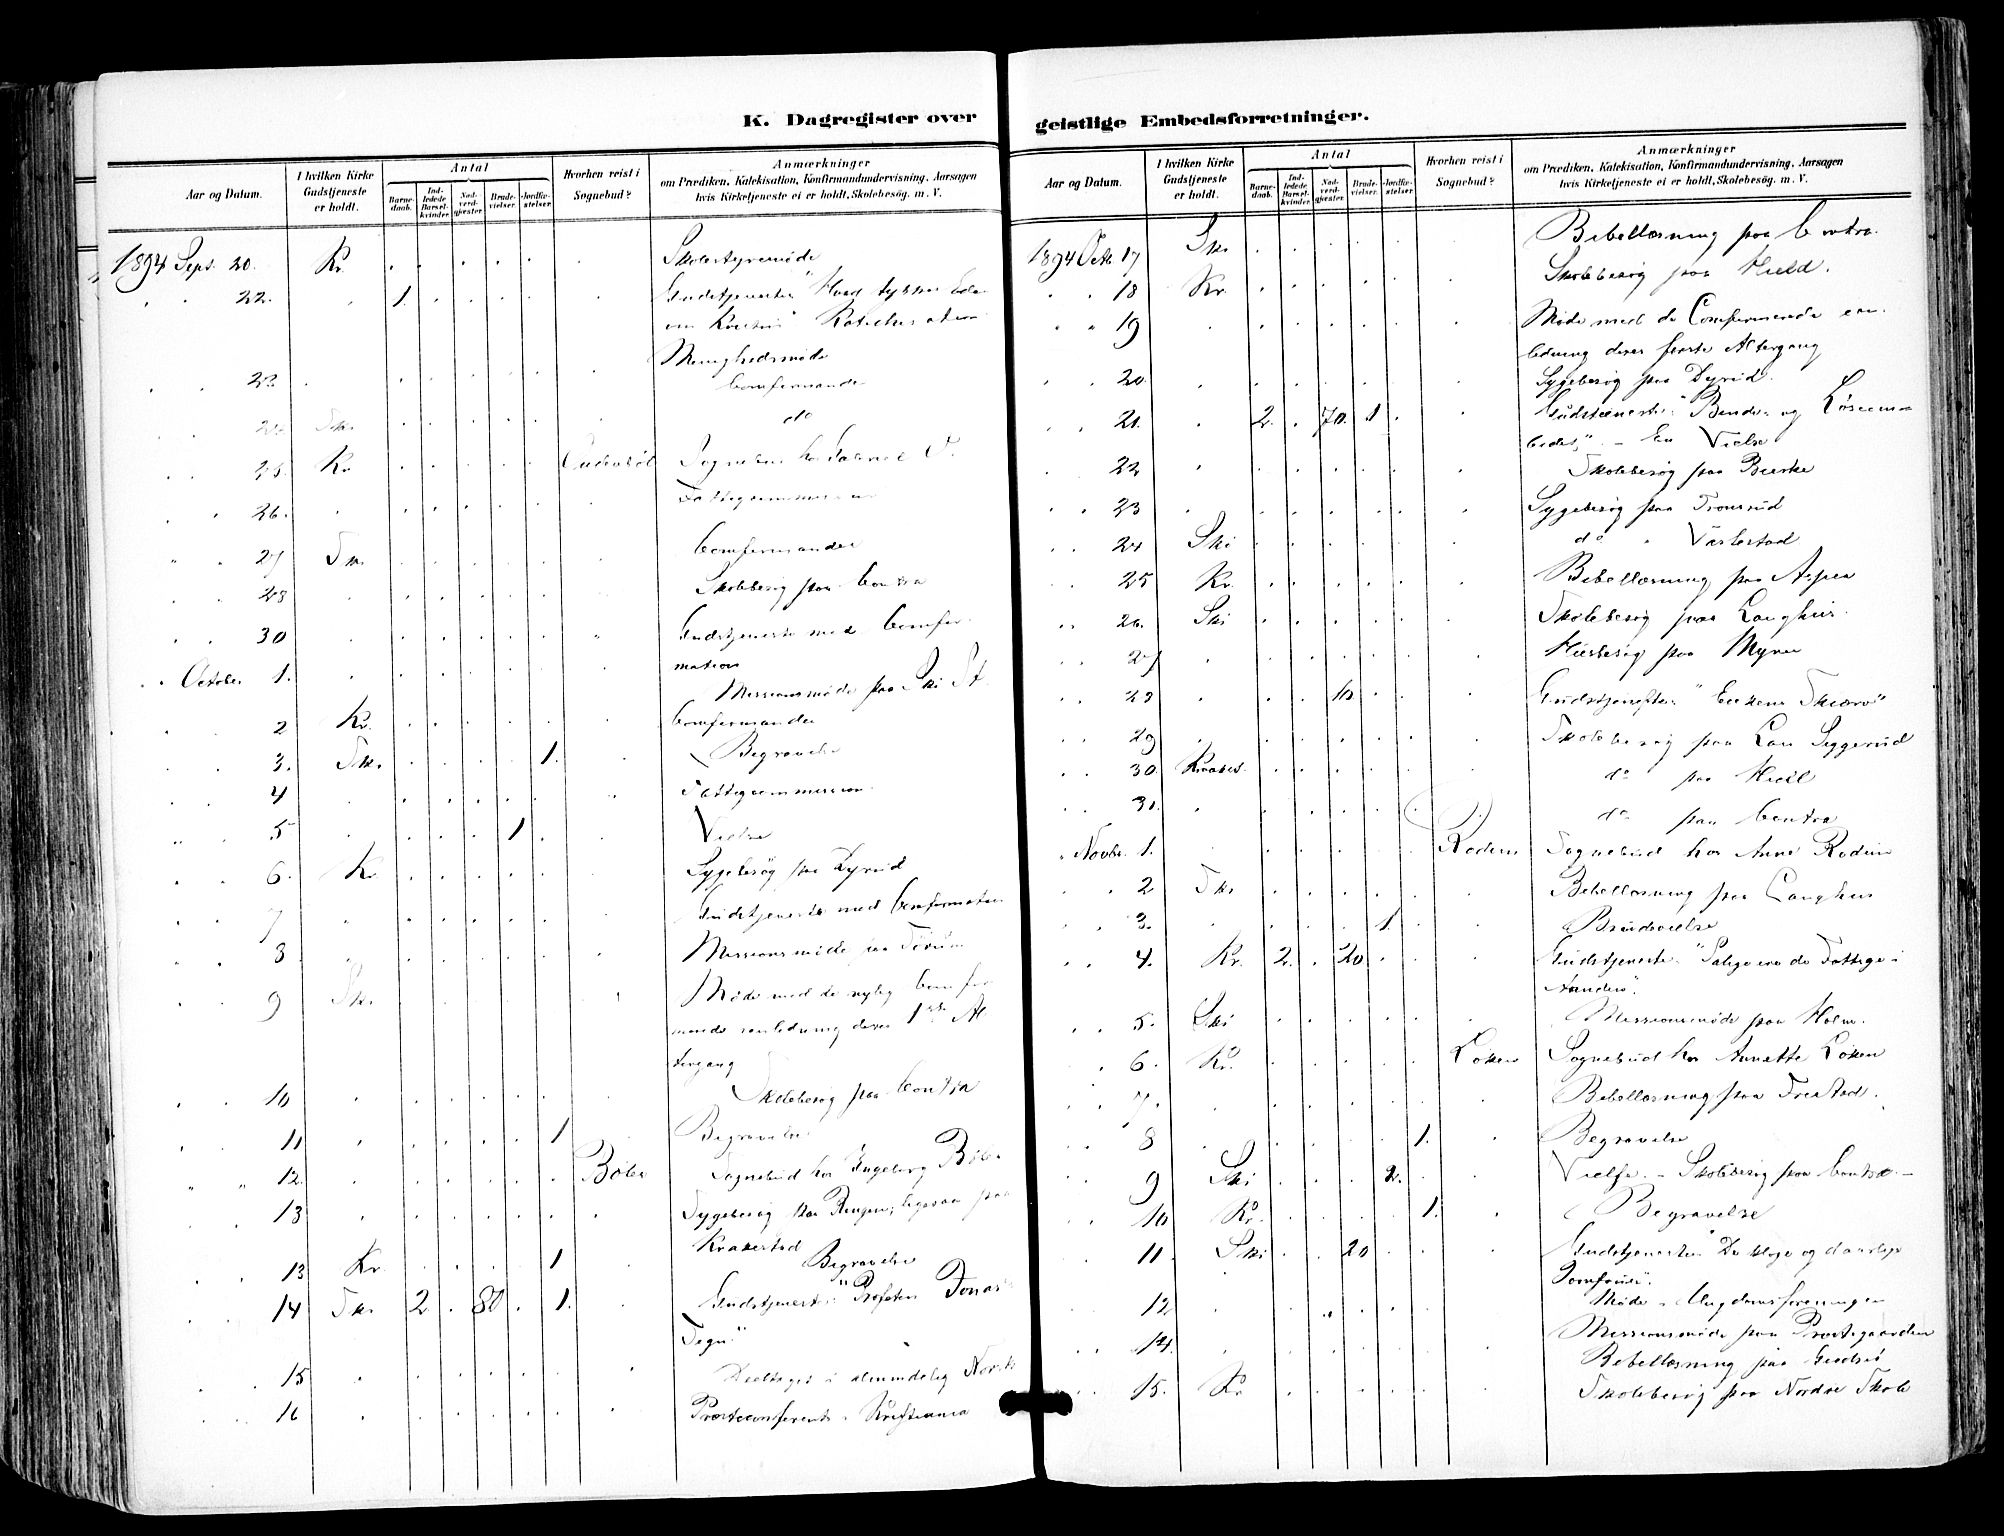 K. Dagregister over
Aar og Datum.
I hvilken Kirke Gudstjeneste er holdt.
Antal
Barnedaab.
Indledede Barselkvinder
Nadverdgjester
Brudevielser.
Jordfæstelser
Hvorhen reist i Sognebud?
Anmærkninger
om Prædiken, Katekisation, Konfirmandundervisning, Aarsagen
hvis Kirketjeneste ei er holdt, Skolebesøg. m. V.
1894 Sept. 20. Kr. Skolestyremøde
22. 1. Gudstjeneste "Hvad tykkes Eder
om Kristus" Katechisation
Menighedsmøde
23. Comfirmander
24. Sk. do
25. Kr Sognebud hos
26. Fattigcommission
27 Sk. Comfirmander
28 Skolebesøg paa Contra
30 Gudstjeneste med Comfir-
mation
October 1. Missionsmøde paa Ski St.
2 Kr. Comfirmander
3. Sk. 1. Begravelse
4 Fattigcommission.
5 1. Vielse
6. Kr Sygebesøg paa Dyrud
7 Gudstjeneste med Comfirmation
8 Missionsmøde paa
9 Sk. Møde med de nylig Comfir
mande i anledning deres 1ste Al
tergang
10 Skolebesøg paa Contra
11 1 Begravelse
12. Bøler Sognebud hos Ingeborg Bøler
13 Sygebesøg paa ligesaa paa
Kraakestad
13 Kr. 1 Begravelse
14 Sk. 2 80 1. Gudstjeneste: "Profeten Jonas
Tegn"
15 Deeltaget i almindelig Norsk
16 Præsteconferents i Kristiania
geistlige Embedsforretninger.
Aar og Datum.
I hvilken Kirke Gudstjeneste er holdt.
Antal
Barnedaab.
Indledede Barselkvinder
Nadverdgjester
Brudevielser.
Jordfæstelser
Hvorhen reist i Sognebud?
Anmærkninger
om Prædiken, Katekisation, Konfirmandundervisning, Aarsagen
hvis Kirketjeneste ei er holdt, Skolebesøg. m. V.
1894 Octb. 17 Sk. Bibellæsning paa Contra.
18 Kr. Skolebesøg paa Hield.
19 Møde med de Comfirmerede i an-
ledning deres første Altergang
20. Sygebesøg paa Dyrud.
21. 2. 70. 1 Gudstjeneste: "Binde- og Løseem-
bedet," - En Vielse
22 Skolebesøg paa
23 Sygebesøg paa
24 Ski do
25 Kr. Bibellæsning paa Aspen
26. Ski Skolebesøg paa Langhus.
27 Huusbesøg paa Myrer
28 10 Gudstjeneste:
29 Skolebesøg paa Siggerud
30. Kraakst. do paa Hield
31. do paa Contra
Novbr. 1. Roden Sognebud hos Anne Roden
2 Sk. Bibellæsning paa Langhus
3. 1. Brudevielse
4. Kr. 2. 20 Gudstjeneste: "Salige ere de Fattige i
Aanden".
5. Ski Missionsmøde paa Holm.
6. Kr. Løken Sognebud hos Annette Løken
7. Bibellæsning paa
8 1. Begravelse
9 Ski 2. Vielse - Skolebesøg paa Contra -
10 Kr. 1. Begravelse
11 Ski 20 Gudstjeneste: "De kloge og daarlige
Jomfruer".
12 Møde i Ungdomsforeningen
14. Missionsmøde paa Præstegaarden
Bibellæsning paa
15. Kr Skolebesøg paa Nordre Skole